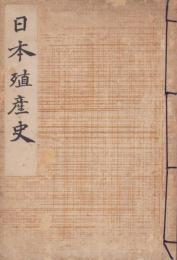 日本殖産史